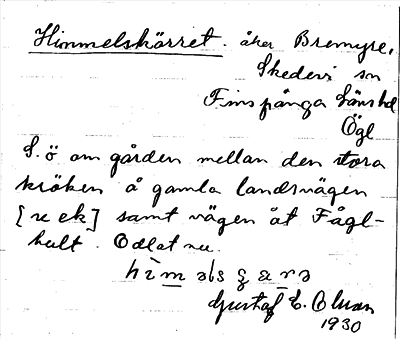 Himmelskärret. åker Bremyre,
Skedevi sn
Finspånga länshd
Ögl
S. ö om gården mellan den stora
kröken å gamla landsvägen
[se ek] samt vägen åt Fågl-
hult. Odlat nu.
hìməlsʂarə
Gustaf E. Olson
1930